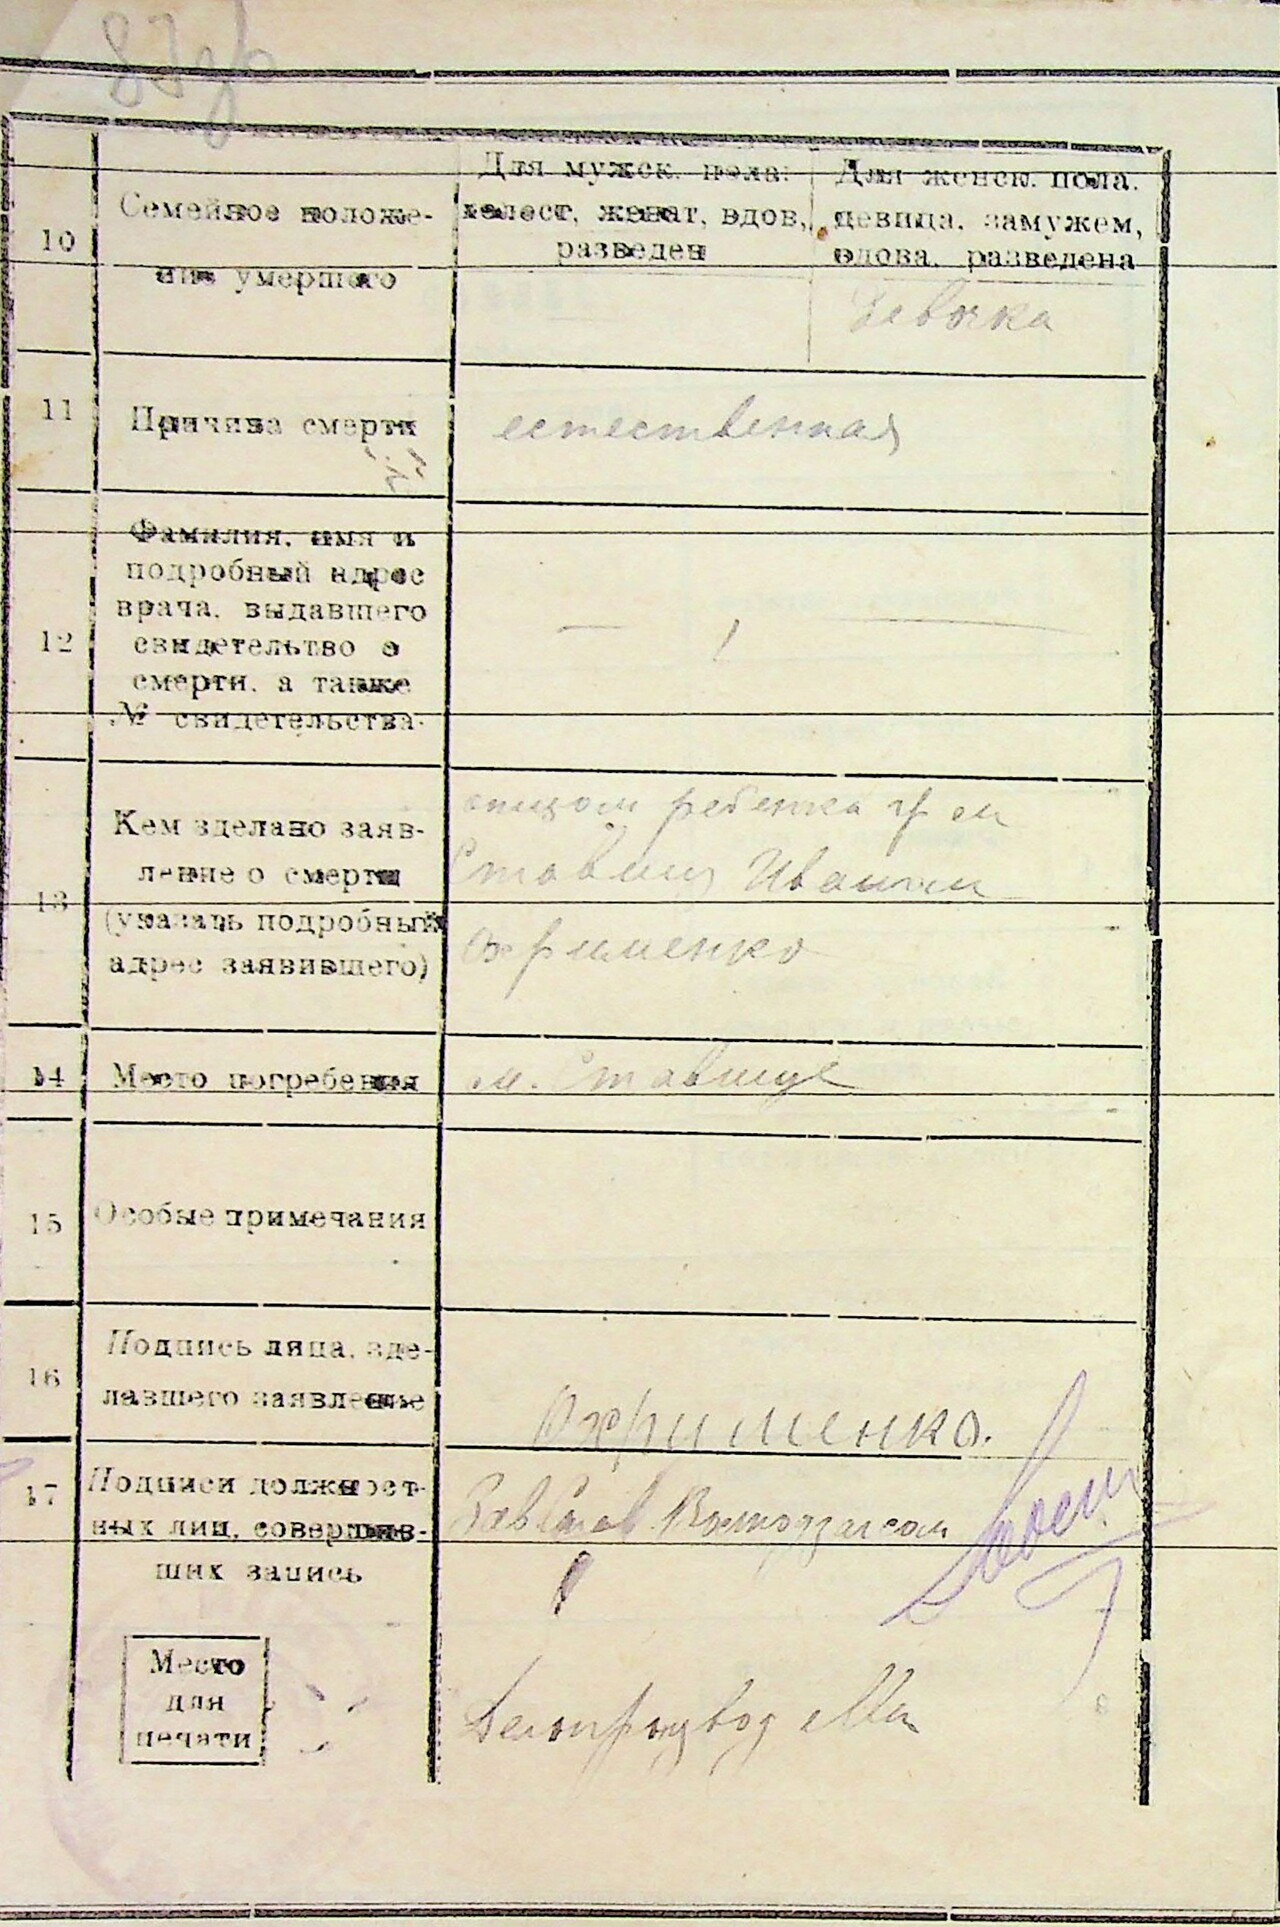 10
Семейное положе-
ние умершого
Для мужск. пола:
холост, женат, вдов,
разведен
Для женск. пола.
девица, замужем,
вдова, разведена
Девочка
11
Причина смерти
естественная
12
Фамилия, имя и
подробный адрес
врача, выдавшего
свидетельство о
смерти, а также
№ свидетельства.
—
13
Кем зделано заяв-
ление о смерти
(указать подробный
адрес заявившего)
отцом ребенка гр. м
Ставищ Иваном
Охрименко
14
Место погребения
м. Ставище
15
Особые примечания
16
Подпись лица, зде-
лавшего заявление
Охрименко.
17
Подписи должност-
ных лиц, совершив-
ших запись
Зав Став
Место
для
печати
Делопроизвод